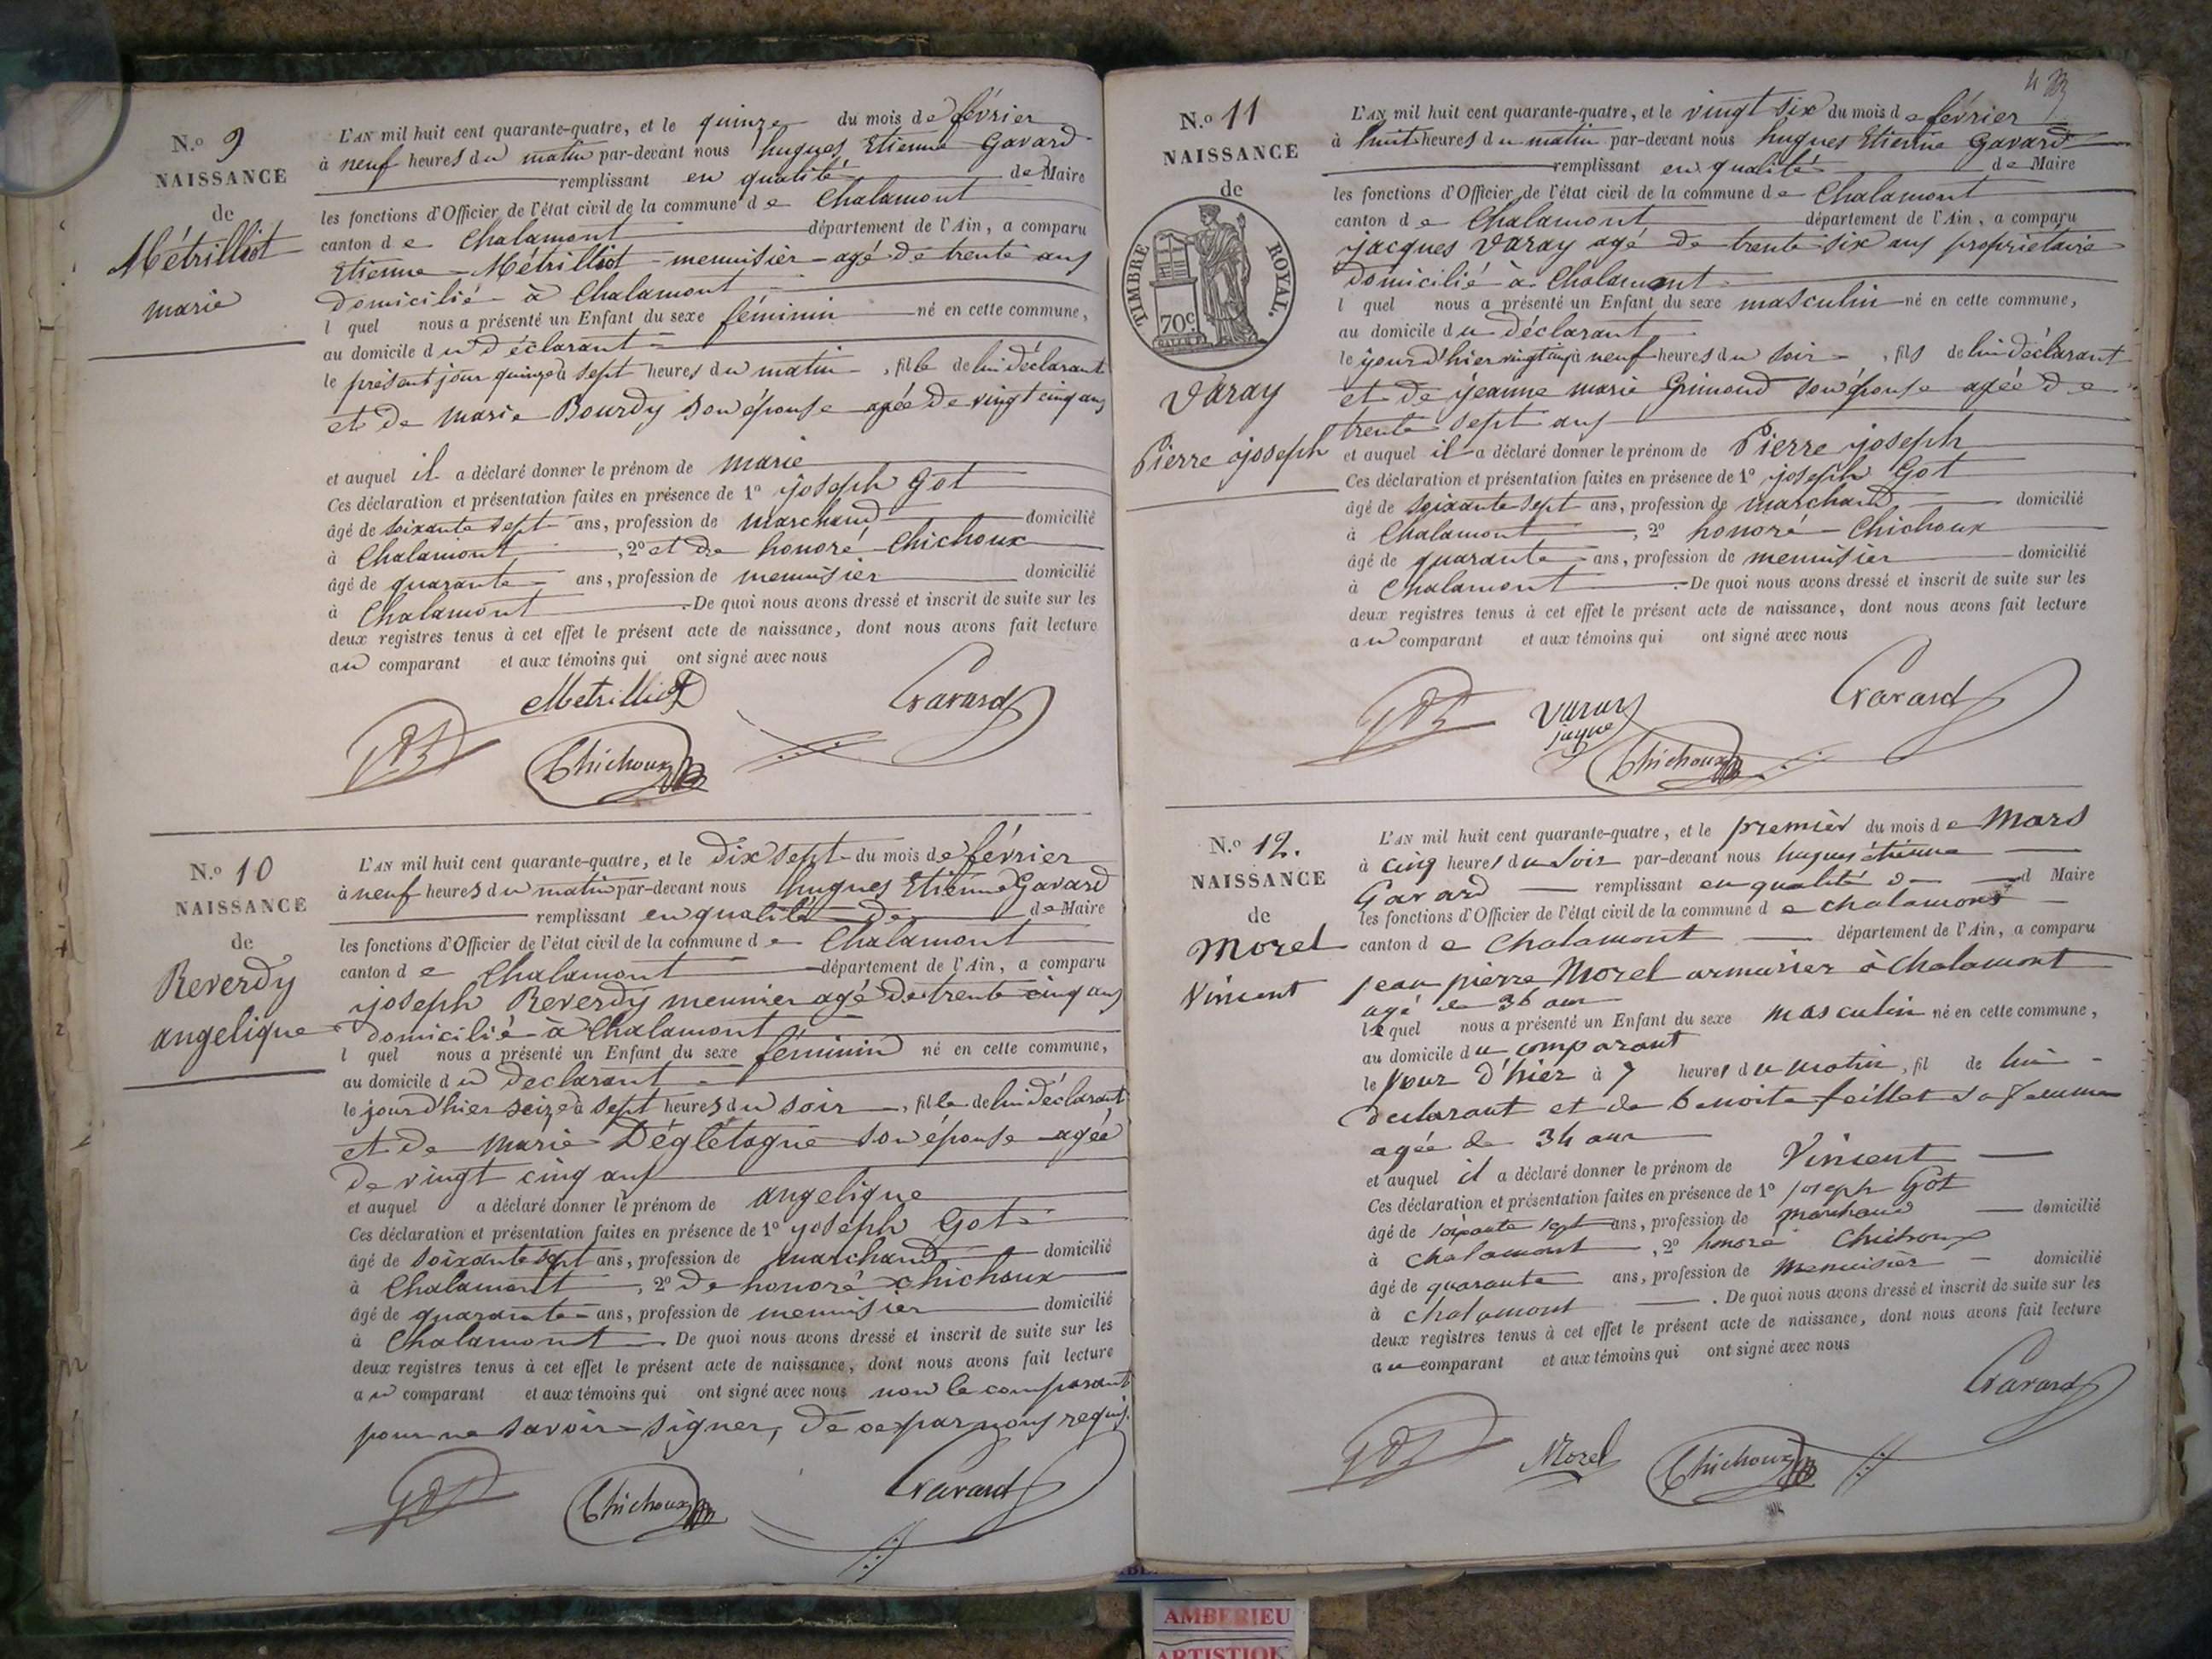 N.o 9
NAISSANCE
de
Métrilliot
marie
L'AN mil huit cent quarante-quatre, et le quinze du mois de février
à neuf heures du matin par-devant nous hugues Etienne Gavard
remplissant en qualité de Maire
les fonctions d'Officier de l'état civil de la commune de Chalamont
canton de Chalamont département de l'Ain, a comparu
Etienne Métrilliot menuisier agé de trente ans
domicilié à Chalamont
l quel nous a présenté un Enfant du sexe féminin né en cette commune,
au domicile du déclarant
le présent jour quinze à sept heures du matin, fille de lui déclarant
et de marie Bourdy son épouse agée de vingt cinq ans
et auquel il a déclaré donner le prénom de marie
Ces déclaration et présentation faites en présence de 1o joseph Got
âgé de soixante sept ans, profession de marchand domicilié
à Chalamont, 2o et de honoré Chichoux
âgé de quarante ans, profession de menuisier domicilié
à Chalamont. De quoi nous avons dressé et inscrit de suite sur les
deux registres tenus à cet effet le présent acte de naissance, dont nous avons fait lecture
au comparant et aux témoins qui ont signé avec nous
Metrilliot Gavard
Got Chichoux
N.o 10
NAISSANCE
de
Reverdy
angelique
L'AN mil huit cent quarante-quatre, et le dix sept du mois de février
à neuf heures du matin par-devant nous hugues Etienne Gavard
remplissant en qualité de de Maire
les fonctions d'Officier de l'état civil de la commune de Chalamont
canton de Chalamont département de l'Ain, a comparu
joseph Reverdy meunier agé de trente cinq ans
domicilié à Chalamont
l quel nous a présenté un Enfant du sexe féminin né en cette commune,
au domicile du declarant
le jourd'hier seize à sept heures du soir, fille de lui déclarant
et de marie Déglétagne son épouse agée
de vingt cinq ans
et auquel a déclaré donner le prénom de angelique
Ces déclaration et présentation faites en présence de 1o joseph Got
âgé de soixante sept ans, profession de marchand domicilié
à Chalamont, 2o de honoré chichoux
âgé de quarante ans, profession de menuisier domicilié
à Chalamont De quoi nous avons dressé et inscrit de suite sur les
deux registres tenus à cet effet le présent acte de naissance, dont nous avons fait lecture
au comparant et aux témoins qui ont signé avec nous non le comparant
pour ne savoir signer, de ce par nous requis.
Got Chichoux Gavard
N.o 11
NAISSANCE
de
TIMBRE ROYAL.
70c
Varay
Pierre joseph
L'AN mil huit cent quarante-quatre, et le vingt six du mois de février
à huit heures du matin par-devant nous hugues Etienne Gavard
remplissant en qualité de Maire
les fonctions d'Officier de l'état civil de la commune de Chalamont
canton de Chalamont département de l'Ain, a comparu
jacques Varay agé de trente six ans propriétaire
domicilié à Chalamont
l quel nous a présenté un Enfant du sexe masculin né en cette commune,
au domicile du déclarant
le jourd'hier vingt cinq à neuf heures du soir, fils de lui déclarant
et de jeanne marie Grimoud son épouse agée de
trente sept ans
et auquel il a déclaré donner le prénom de Pierre joseph
Ces déclaration et présentation faites en présence de 1o joseph Got
âgé de soixante sept ans, profession de marchand domicilié
à Chalamont, 2o honoré Chichoux
âgé de quarante ans, profession de menuisier domicilié
à Chalamont. De quoi nous avons dressé et inscrit de suite sur les
deux registres tenus à cet effet le présent acte de naissance, dont nous avons fait lecture
au comparant et aux témoins qui ont signé avec nous
Got Varay Gavard
Chichoux
N.o 12.
NAISSANCE
de
Morel
Vincent
L'AN mil huit cent quarante-quatre, et le premièr du mois de Mars
à cinq heures du soir par-devant nous hugues étienne
Gavard remplissant en qualité d d Maire
les fonctions d'Officier de l'état civil de la commune de chalamont
canton de Chalamont département de l'Ain, a comparu
jean pierre Morel armurier à Chalamont
agé de 36 ans
lequel nous a présenté un Enfant du sexe masculin né en cette commune,
au domicile du comparant
le jour d'hier à 7 heures du matin, fil de lui
declarant et de benoite feillet sa femme
agée de 34 ans
et auquel il a déclaré donner le prénom de Vincent
Ces déclaration et présentation faites en présence de 1o joseph Got
âgé de soixante sept ans, profession de marchand domicilié
à chalamont, 2o honoré Chichoux
âgé de quarante ans, profession de menuisier domicilié
à chalamont. De quoi nous avons dressé et inscrit de suite sur les
deux registres tenus à cet effet le présent acte de naissance, dont nous avons fait lecture
au comparant et aux témoins qui ont signé avec nous
Gavard
Got Morel Chichoux
AMBERIEU
ARTISTIQ